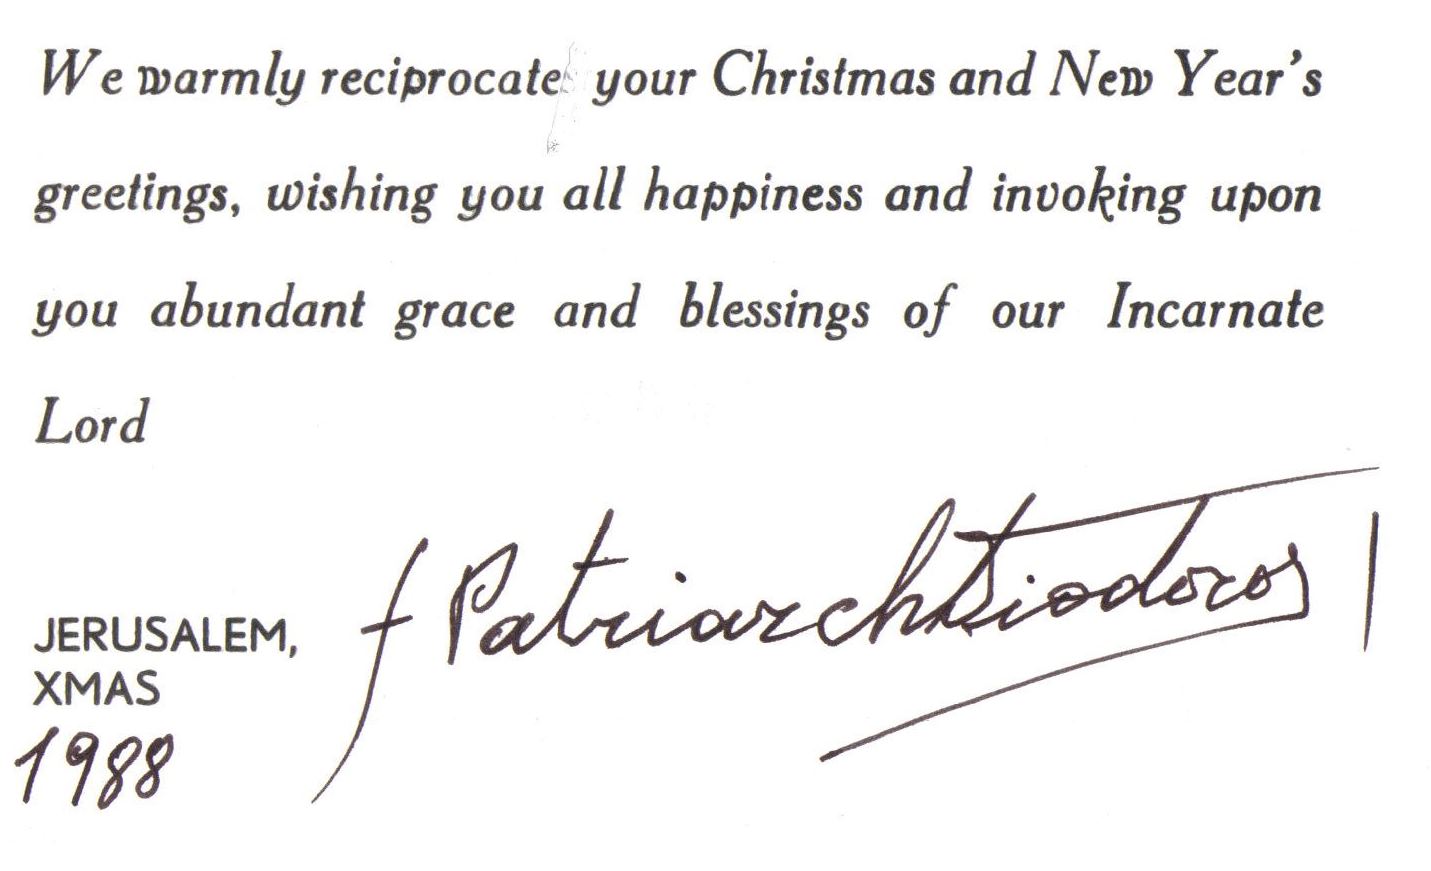 We warmly reciprocate your Christmas and New Year's
greetings, wishing you all happiness and invoking upon
you abundant grace and blessings of our Incarnate
Lord
† Patriarch Diodoros I
JERUSALEM,
XMAS
1988